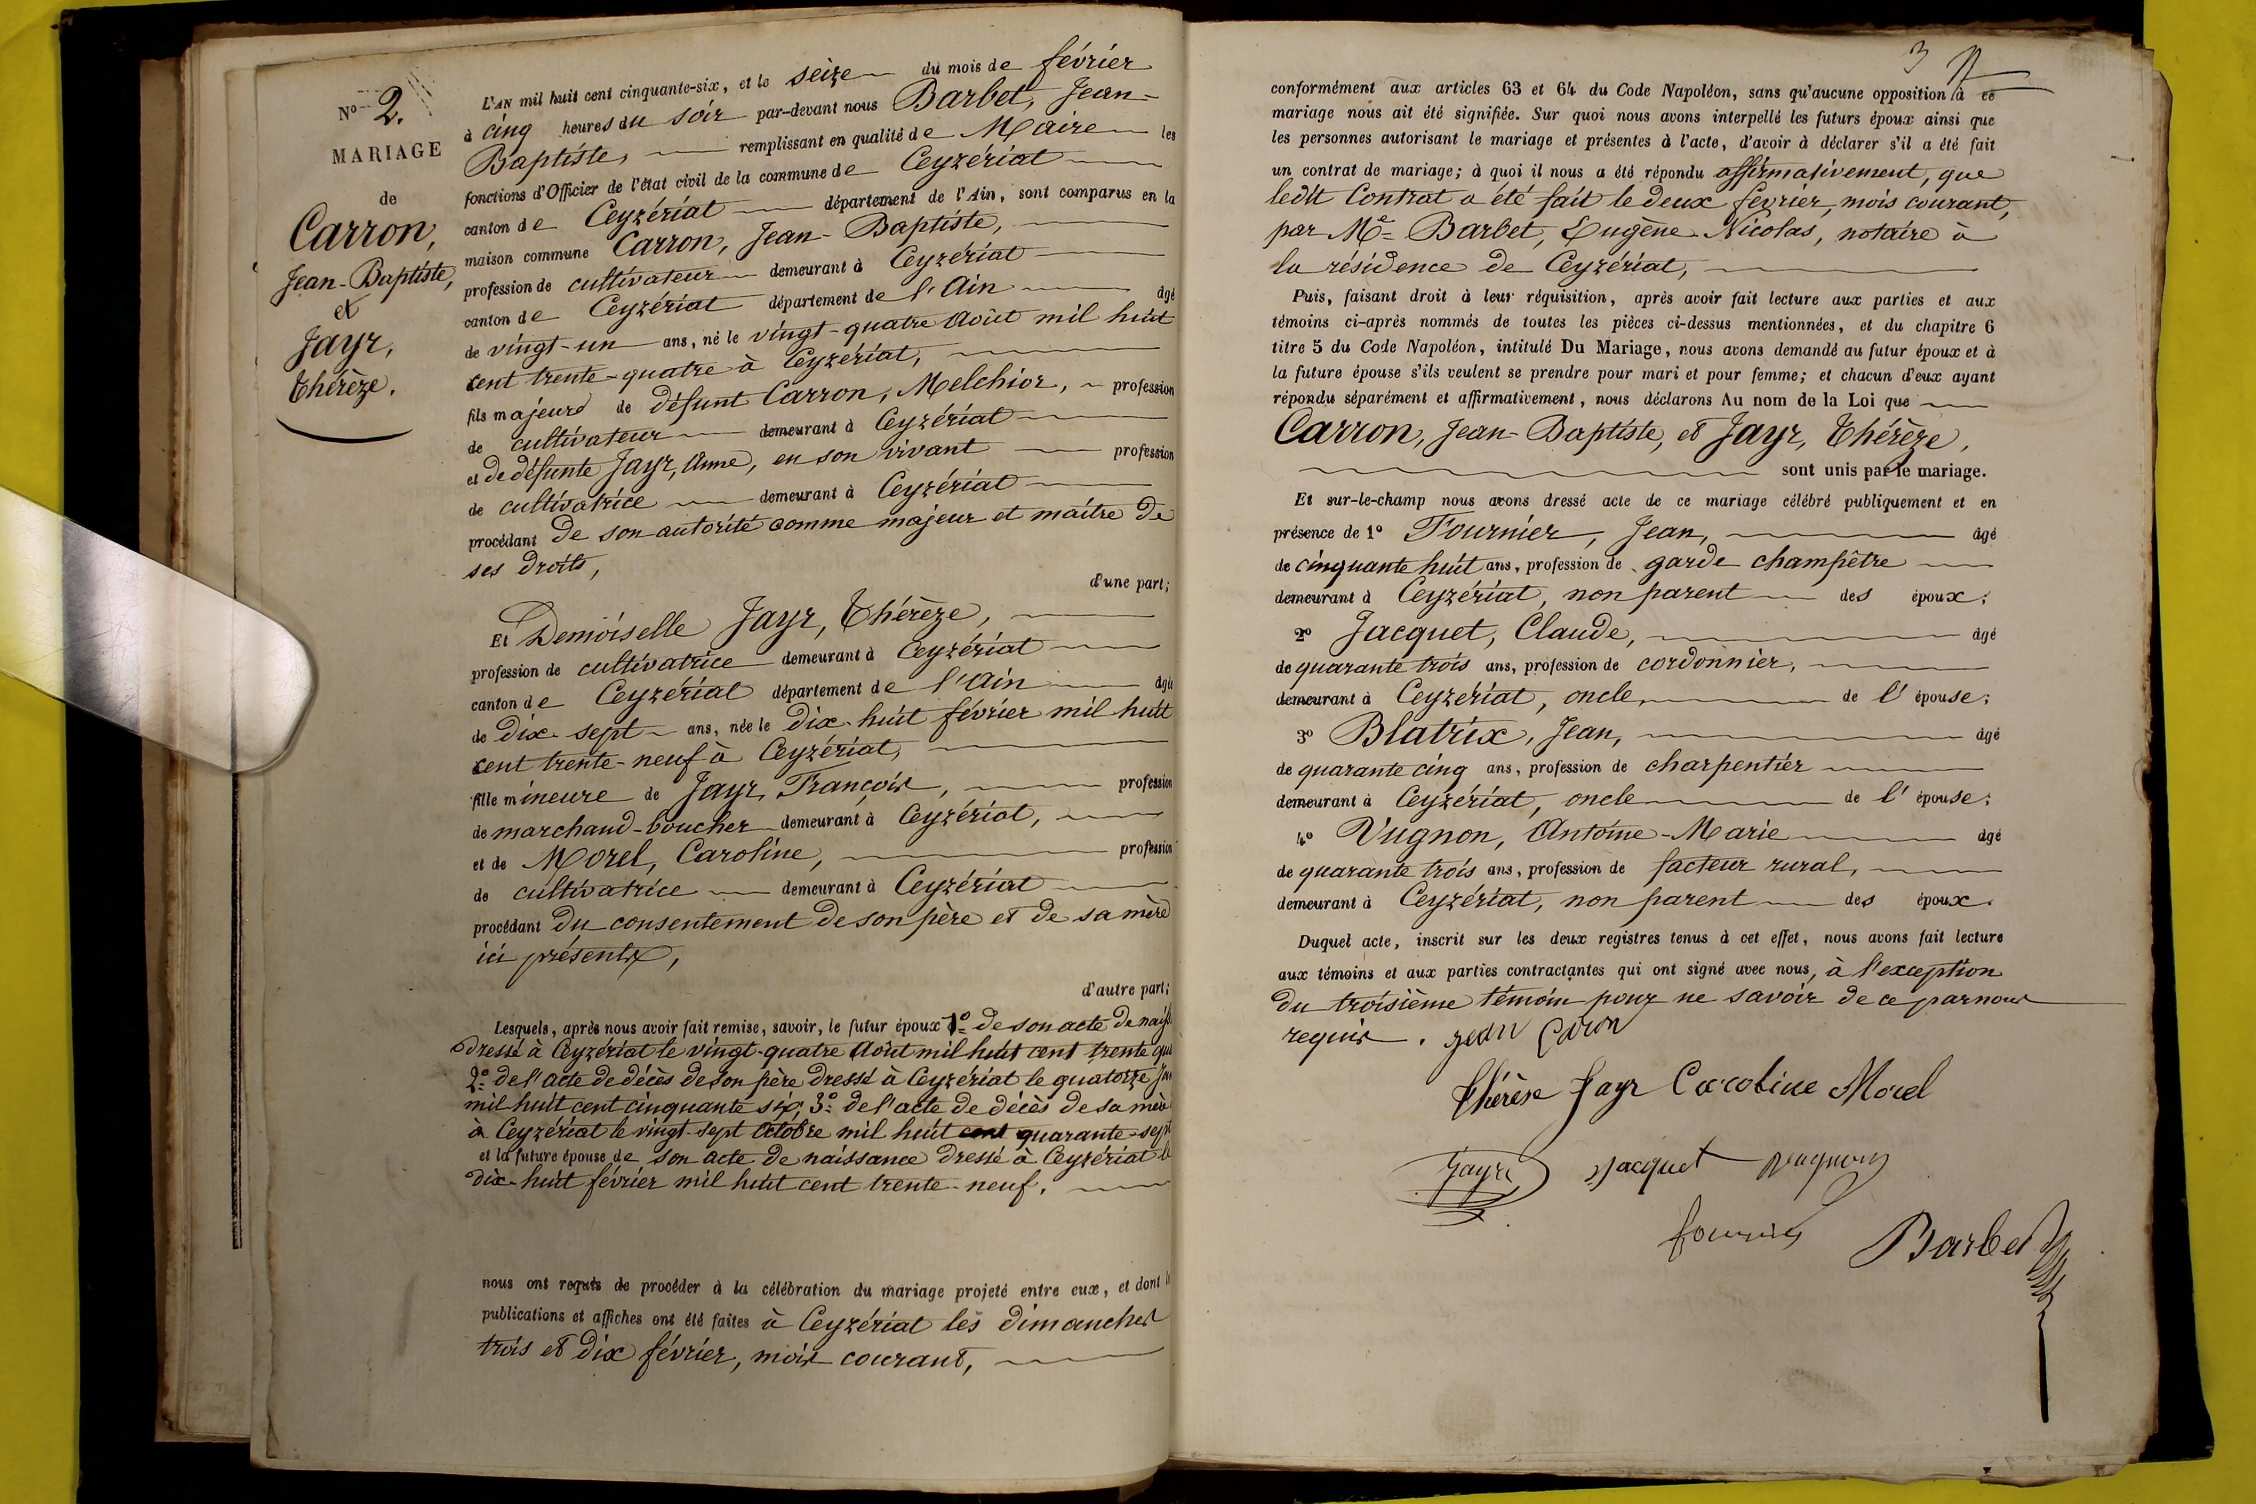 N° 2.
MARIAGE
de
Carron,
Jean-Baptiste,
et
Jayr,
Thérèze.
L'AN mil huit cent cinquante-six, et le seize du mois de février
à cinq heures du soir par-devant nous Barbet, Jean-
Baptiste, remplissant en qualité de Maire les
fonctions d'Officier de l'état civil de la commune de Ceyzériat
canton de Ceyzériat département de l'Ain, sont comparus en la
maison commune Carron, Jean-Baptiste,
profession de cultivateur demeurant à Ceyzériat
canton de Ceyzériat département de l'Ain âgé
de vingt-un ans, né le vingt-quatre Août mil huit
cent trente-quatre à Ceyzériat,
fils majeur de défunt Carron, Melchior, profession
de cultivateur demeurant à Ceyzériat
et de défunte Jayr, Anne, en son vivant profession
de cultivatrice demeurant à Ceyzériat
procédant de son autorité comme majeur et maître de
ses droits,
d'une part;
Et Demoiselle Jayr, Thérèze,
profession de cultivatrice demeurant à Ceyzériat
canton de Ceyzériat département de l'Ain âgée
de dix-sept ans, née le dix-huit février mil huit
cent trente-neuf à Ceyzériat,
fille mineure de Jayr, François, profession
de marchand-boucher demeurant à Ceyzériat,
et de Morel, Caroline, profession
de cultivatrice demeurant à Ceyzériat
procédant du consentement de son père et de sa mère
ici présents,
d'autre part;
Lesquels, après nous avoir fait remise, savoir, le futur époux 1° de son acte de naiss
dressé à Ceyzériat le vingt-quatre Août mil huit cent trente qua
2° de l'acte de décès de son père dressé à Ceyzériat le quatorze Jan
mil huit cent cinquante six; 3° de l'acte de décès de sa mère
à Ceyzériat le vingt-sept Octobre mil huit cent quarante-sept
et la future épouse de son acte de naissance dressé à Ceyzériat le
dix-huit février mil huit cent trente-neuf.
nous ont requis de procéder à la célébration du mariage projeté entre eux, et dont l
publications et affiches ont été faites à Ceyzériat les dimanches
trois et dix février, mois courant,
3
conformément aux articles 63 et 64 du Code Napoléon, sans qu'aucune opposition à ce
mariage nous ait été signifiée. Sur quoi nous avons interpellé les futurs époux ainsi que
les personnes autorisant le mariage et présentes à l'acte, d'avoir à déclarer s'il a été fait
un contrat de mariage; à quoi il nous a été répondu affirmativement, que
ledit Contrat a été fait le deux février, mois courant,
par Me Barbet, Eugène-Nicolas, notaire à
la résidence de Ceyzériat,
Puis, faisant droit à leur réquisition, après avoir fait lecture aux parties et aux
témoins ci-après nommés de toutes les pièces ci-dessus mentionnées, et du chapitre 6
titre 5 du Code Napoléon, intitulé Du Mariage, nous avons demandé au futur époux et à
la future épouse s'ils veulent se prendre pour mari et pour femme; et chacun d'eux ayant
répondu séparément et affirmativement, nous déclarons Au nom de la Loi que
Carron, Jean-Baptiste, et Jayr, Thérèze,
sont unis par le mariage.
Et sur-le-champ nous avons dressé acte de ce mariage célébré publiquement et en
présence de 1° Fournier, Jean, âgé
de cinquante huit ans, profession de garde champêtre
demeurant à Ceyzériat, non parent des époux;
2° Jacquet, Claude, âgé
de quarante trois ans, profession de cordonnier,
demeurant à Ceyzériat, oncle de l'épouse;
3° Blatrix, Jean, âgé
de quarante cinq ans, profession de charpentier
demeurant à Ceyzériat, oncle de l'épouse;
4° Vugnon, Antoine-Marie âgé
de quarante trois ans, profession de facteur rural,
demeurant à Ceyzériat, non parent des époux.
Duquel acte, inscrit sur les deux registres tenus à cet effet, nous avons fait lecture
aux témoins et aux parties contractantes qui ont signé avec nous, à l'exception
du troisième témoin pour ne savoir de ce par nous
requis. Jean Caron
Thérèse Jayr Caroline Morel
Jayr Jacquet Vugnon
fournier Barbet